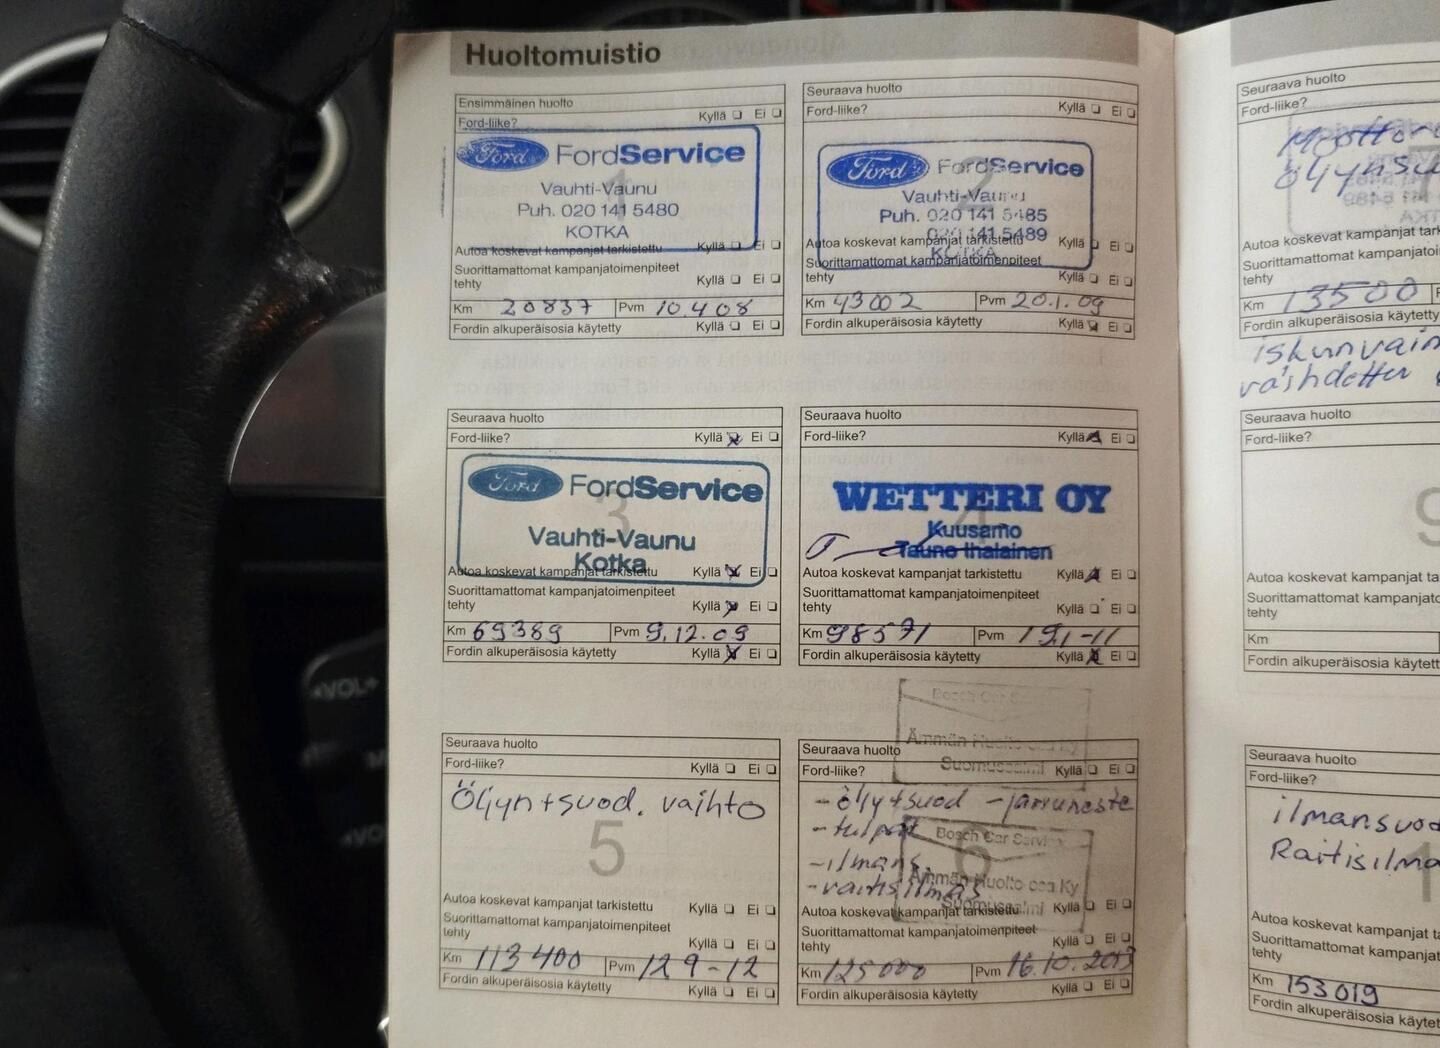 Huoltomuistio
Ensimmäinen huolto
Ford-liike? Kyllä Ei
Ford FordService
1
Vauhti-Vaunu
Puh. 020 141 5480
KOTKA
Autoa koskevat kampanjat tarkistettu Kyllä Ei
Suorittamattomat kampanjatoimenpiteet
tehty Kyllä Ei
Km 20837 Pvm 10.4.08
Fordin alkuperäisosia käytetty Kyllä Ei
Seuraava huolto
Ford-liike? Kyllä Ei
Ford FordService
2
Vauhti-Vaunu
Puh. 020 141 5485
020 141 5489
KOTKA
Autoa koskevat kampanjat tarkistettu Kyllä Ei
Suorittamattomat kampanjatoimenpiteet
tehty Kyllä Ei
Km 43002 Pvm 20.1.09
Fordin alkuperäisosia käytetty Kyllä Ei
Seuraava huolto
Ford-liike? Kyllä Ei
Ford FordService
3
Vauhti-Vaunu
Kotka
Autoa koskevat kampanjat tarkistettu Kyllä Ei
Suorittamattomat kampanjatoimenpiteet
tehty Kyllä Ei
Km 69389 Pvm 9.12.09
Fordin alkuperäisosia käytetty Kyllä Ei
Seuraava huolto
Ford-liike? Kyllä Ei
WETTERI OY
4
Kuusamo
Tauno Ihalainen
Autoa koskevat kampanjat tarkistettu Kyllä Ei
Suorittamattomat kampanjatoimenpiteet
tehty Kyllä Ei
Km 98571 Pvm 19.1-11
Fordin alkuperäisosia käytetty Kyllä Ei
Seuraava huolto
Ford-liike? Kyllä Ei
Öljyn+suod. vaihto
5
Autoa koskevat kampanjat tarkistettu Kyllä Ei
Suorittamattomat kampanjatoimenpiteet
tehty Kyllä Ei
Km 113400 Pvm 12 9-12
Fordin alkuperäisosia käytetty Kyllä Ei
Bosch Car
Ämmän Huolto osa Ky
Suomussalmi
Seuraava huolto
Ford-liike? Kyllä Ei
-öljy+suod -jarruneste
-tulpat
Bosch Car Service
6
-ilmans.
Ämmän Huolto osa Ky
-raitisilmas
Suomussalmi
Autoa koskevat kampanjat tarkistettu Kyllä Ei
Suorittamattomat kampanjatoimenpiteet
tehty Kyllä Ei
Km 125000 Pvm 16.10.2013
Fordin alkuperäisosia käytetty Kyllä Ei
Seuraava huolto
Ford-liike?
Autoa koskevat kampanjat
Suorittamattomat kampanjato
tehty
Km 13500
Fordin alkuperäisosia käytettyä
Seuraava huolto
Ford-liike?
9
Autoa koskevat kampanjat ta
Suorittamattomat kampanjato
tehty
Km
Fordin alkuperäisosia käytett
Seuraava huolto
Ford-liike?
ilmansuod
Raitisilma
1
Autoa koskevat kampanjat ta
Suorittamattomat kampanjat
tehty
Km 153019
Fordin alkuperäisosia käytet
VOL+